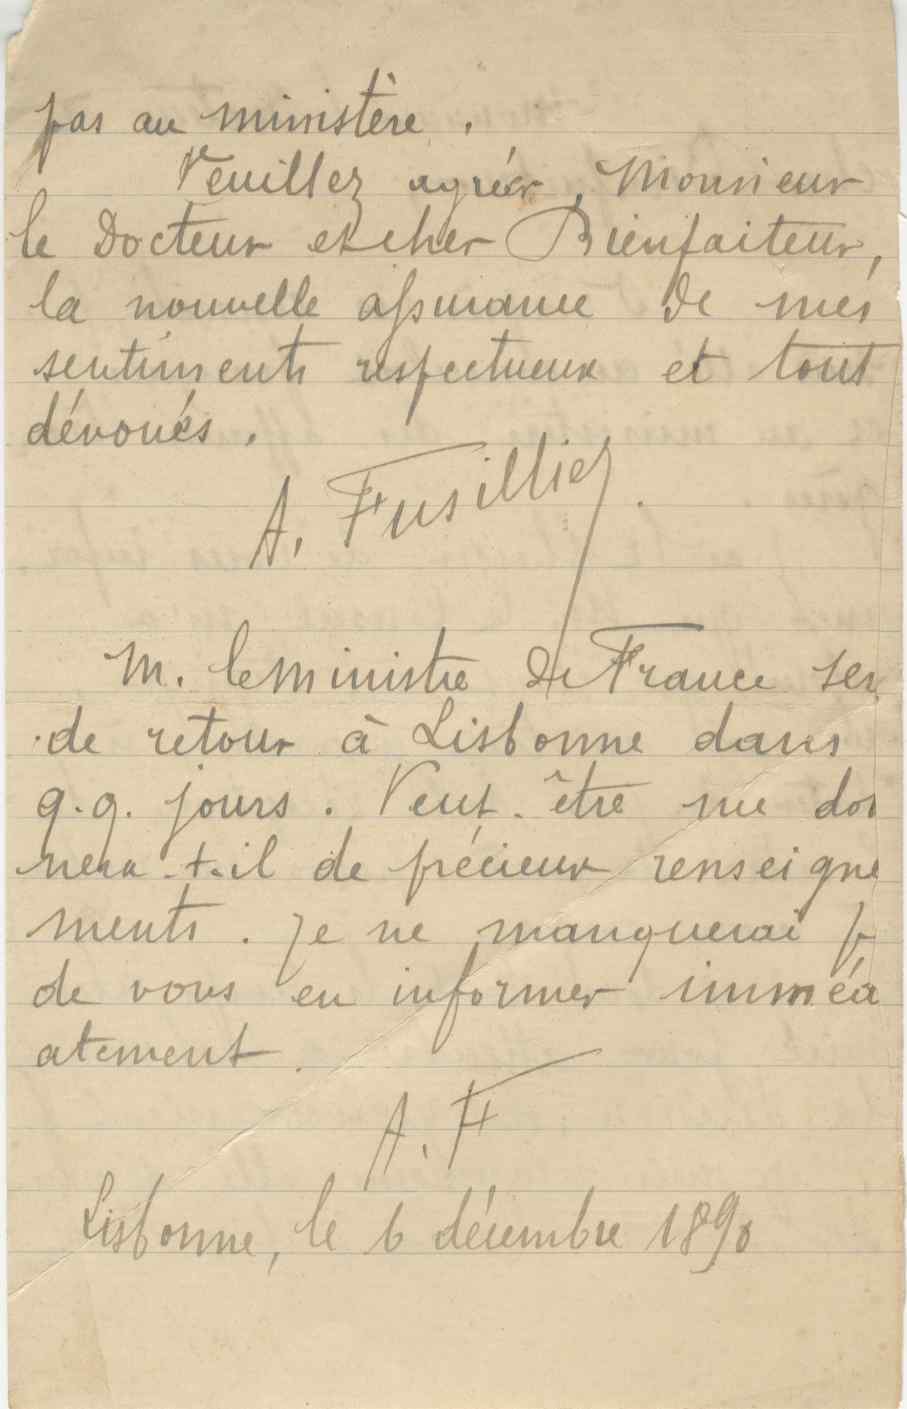 pas au ministère.
Veuillez agréer, Monsieur
le Docteur et cher Bienfaiteur,
la nouvelle assurance de mes
sentiments respectueux et tout
dévoués.
A. Fusillier.
M. le ministre de France ser
de retour à Lisbonne dans
q.q. jours. Peut-être me don
nera-t-il de précieux renseigne
ments. Je ne manquerai p
de vous en informer imméd
atement.
A. F
Lisbonne, le 6 décembre 1890